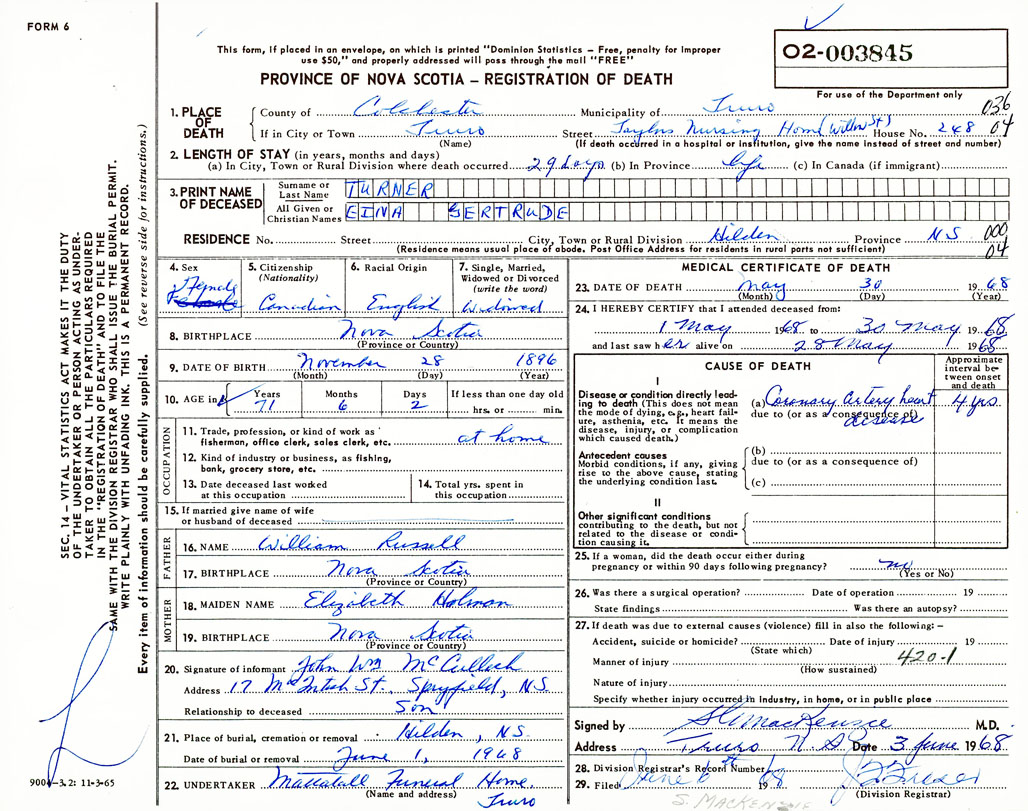 FORM 6
This form, if placed in an envelope, on which is printed "Dominion Statistics – Free, penalty for improper
use $50," and properly addressed will pass through the mail "FREE"
PROVINCE OF NOVA SCOTIA – REGISTRATION OF DEATH
O2-003845
For use of the Department only
036
04
1. PLACE OF DEATH
County of Colchester Municipality of Truro
If in City or Town Truro Street Taylors Nursing Home (Willow St) House No. 248
(Name) (If death occurred in a hospital or institution, give the name instead of street and number)
2. LENGTH OF STAY (in years, months and days)
(a) In City, Town or Rural Division where death occurred 29 days (b) In Province life (c) In Canada (if immigrant)
3. PRINT NAME OF DECEASED
Surname or Last Name TURNER
All Given or Christian Names EINA GERTRUDE
RESIDENCE No. Street City, Town or Rural Division Hilden Province N S
000
04
(Residence means usual place of abode. Post Office Address for residents in rural parts not sufficient)
4. Sex Female
5. Citizenship (Nationality) Canadian
6. Racial Origin English
7. Single, Married, Widowed or Divorced (write the word) Widowed
8. BIRTHPLACE Nova Scotia
(Province or Country)
9. DATE OF BIRTH November 28 1896
(Month) (Day) (Year)
10. AGE in Years 71 Months 6 Days 2 If less than one day old hrs. or min.
OCCUPATION
11. Trade, profession, or kind of work as fisherman, office clerk, sales clerk, etc. at home
12. Kind of industry or business, as fishing, bank, grocery store, etc.
13. Date deceased last worked at this occupation
14. Total yrs. spent in this occupation
15. If married give name of wife or husband of deceased
FATHER
16. NAME William Russell
17. BIRTHPLACE Nova Scotia
(Province or Country)
MOTHER
18. MAIDEN NAME Elizabeth Holman
19. BIRTHPLACE Nova Scotia
(Province or Country)
20. Signature of informant John Wm McCulloch
Address 17 McIntosh St., Spryfield, N.S.
Relationship to deceased Son
21. Place of burial, cremation or removal Hilden, N.S.
Date of burial or removal June 1, 1968
22. UNDERTAKER Mattatall Funeral Home,
(Name and address) Truro
MEDICAL CERTIFICATE OF DEATH
23. DATE OF DEATH May 30 1968
(Month) (Day) (Year)
24. I HEREBY CERTIFY that I attended deceased from:
1 May 1968 to 30 May 1968
and last saw her alive on 28 May 1968
CAUSE OF DEATH
Approximate interval between onset and death
I
Disease or condition directly leading to death (This does not mean the mode of dying, e.g., heart failure, asthenia, etc. It means the disease, injury, or complication which caused death.)
(a) Coronary artery heart disease 4 yrs.
due to (or as a consequence of)
Antecedent causes
Morbid conditions, if any, giving rise to the above cause, stating the underlying condition last.
(b)
due to (or as a consequence of)
(c)
II
Other significant conditions
contributing to the death, but not related to the disease or condition causing it.
25. If a woman, did the death occur either during
pregnancy or within 90 days following pregnancy? no
(Yes or No)
26. Was there a surgical operation? Date of operation 19
State findings Was there an autopsy?
27. If death was due to external causes (violence) fill in also the following: –
Accident, suicide or homicide? Date of injury 19
(State which)
Manner of injury 420-1
(How sustained)
Nature of injury
Specify whether injury occurred in industry, in home, or in public place
Signed by S H MacKenzie M.D.
Address Truro N S Date 3 June 1968
28. Division Registrar's Record Number
29. Filed June 6th 1968
(Division Registrar)
S. MACKENZIE
SEC. 14 – VITAL STATISTICS ACT MAKES IT THE DUTY
OF THE UNDERTAKER OR PERSON ACTING AS UNDER-
TAKER TO OBTAIN ALL THE PARTICULARS REQUIRED
IN THE "REGISTRATION OF DEATH" AND TO FILE THE
SAME WITH THE DIVISION REGISTRAR WHO SHALL ISSUE THE BURIAL PERMIT.
WRITE PLAINLY WITH UNFADING INK. THIS IS A PERMANENT RECORD.
Every item of information should be carefully supplied. (See reverse side for instructions.)
9004–3.2: 11-3-65